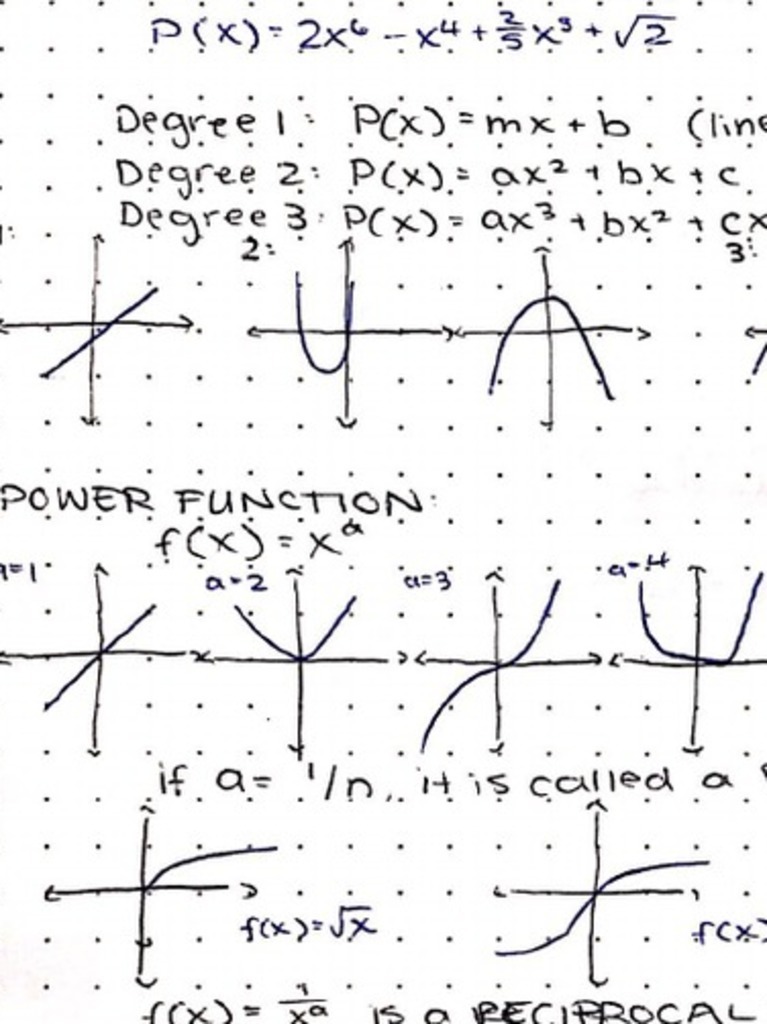 P(x) = 2x⁶ - x⁴ + 2/5x³ + √2
Degree 1: P(x) = mx + b (line
Degree 2: P(x) = ax² + bx + c
Degree 3: P(x) = ax³ + bx² + cx
1: 2: 3:
POWER FUNCTION:
f(x) = xᵃ
a=1 a=2 a=3 a=4
if a= 1/n, it is called a
f(x)=√x f(x)
f(x) = 1/xᵃ is a RECIPROCAL